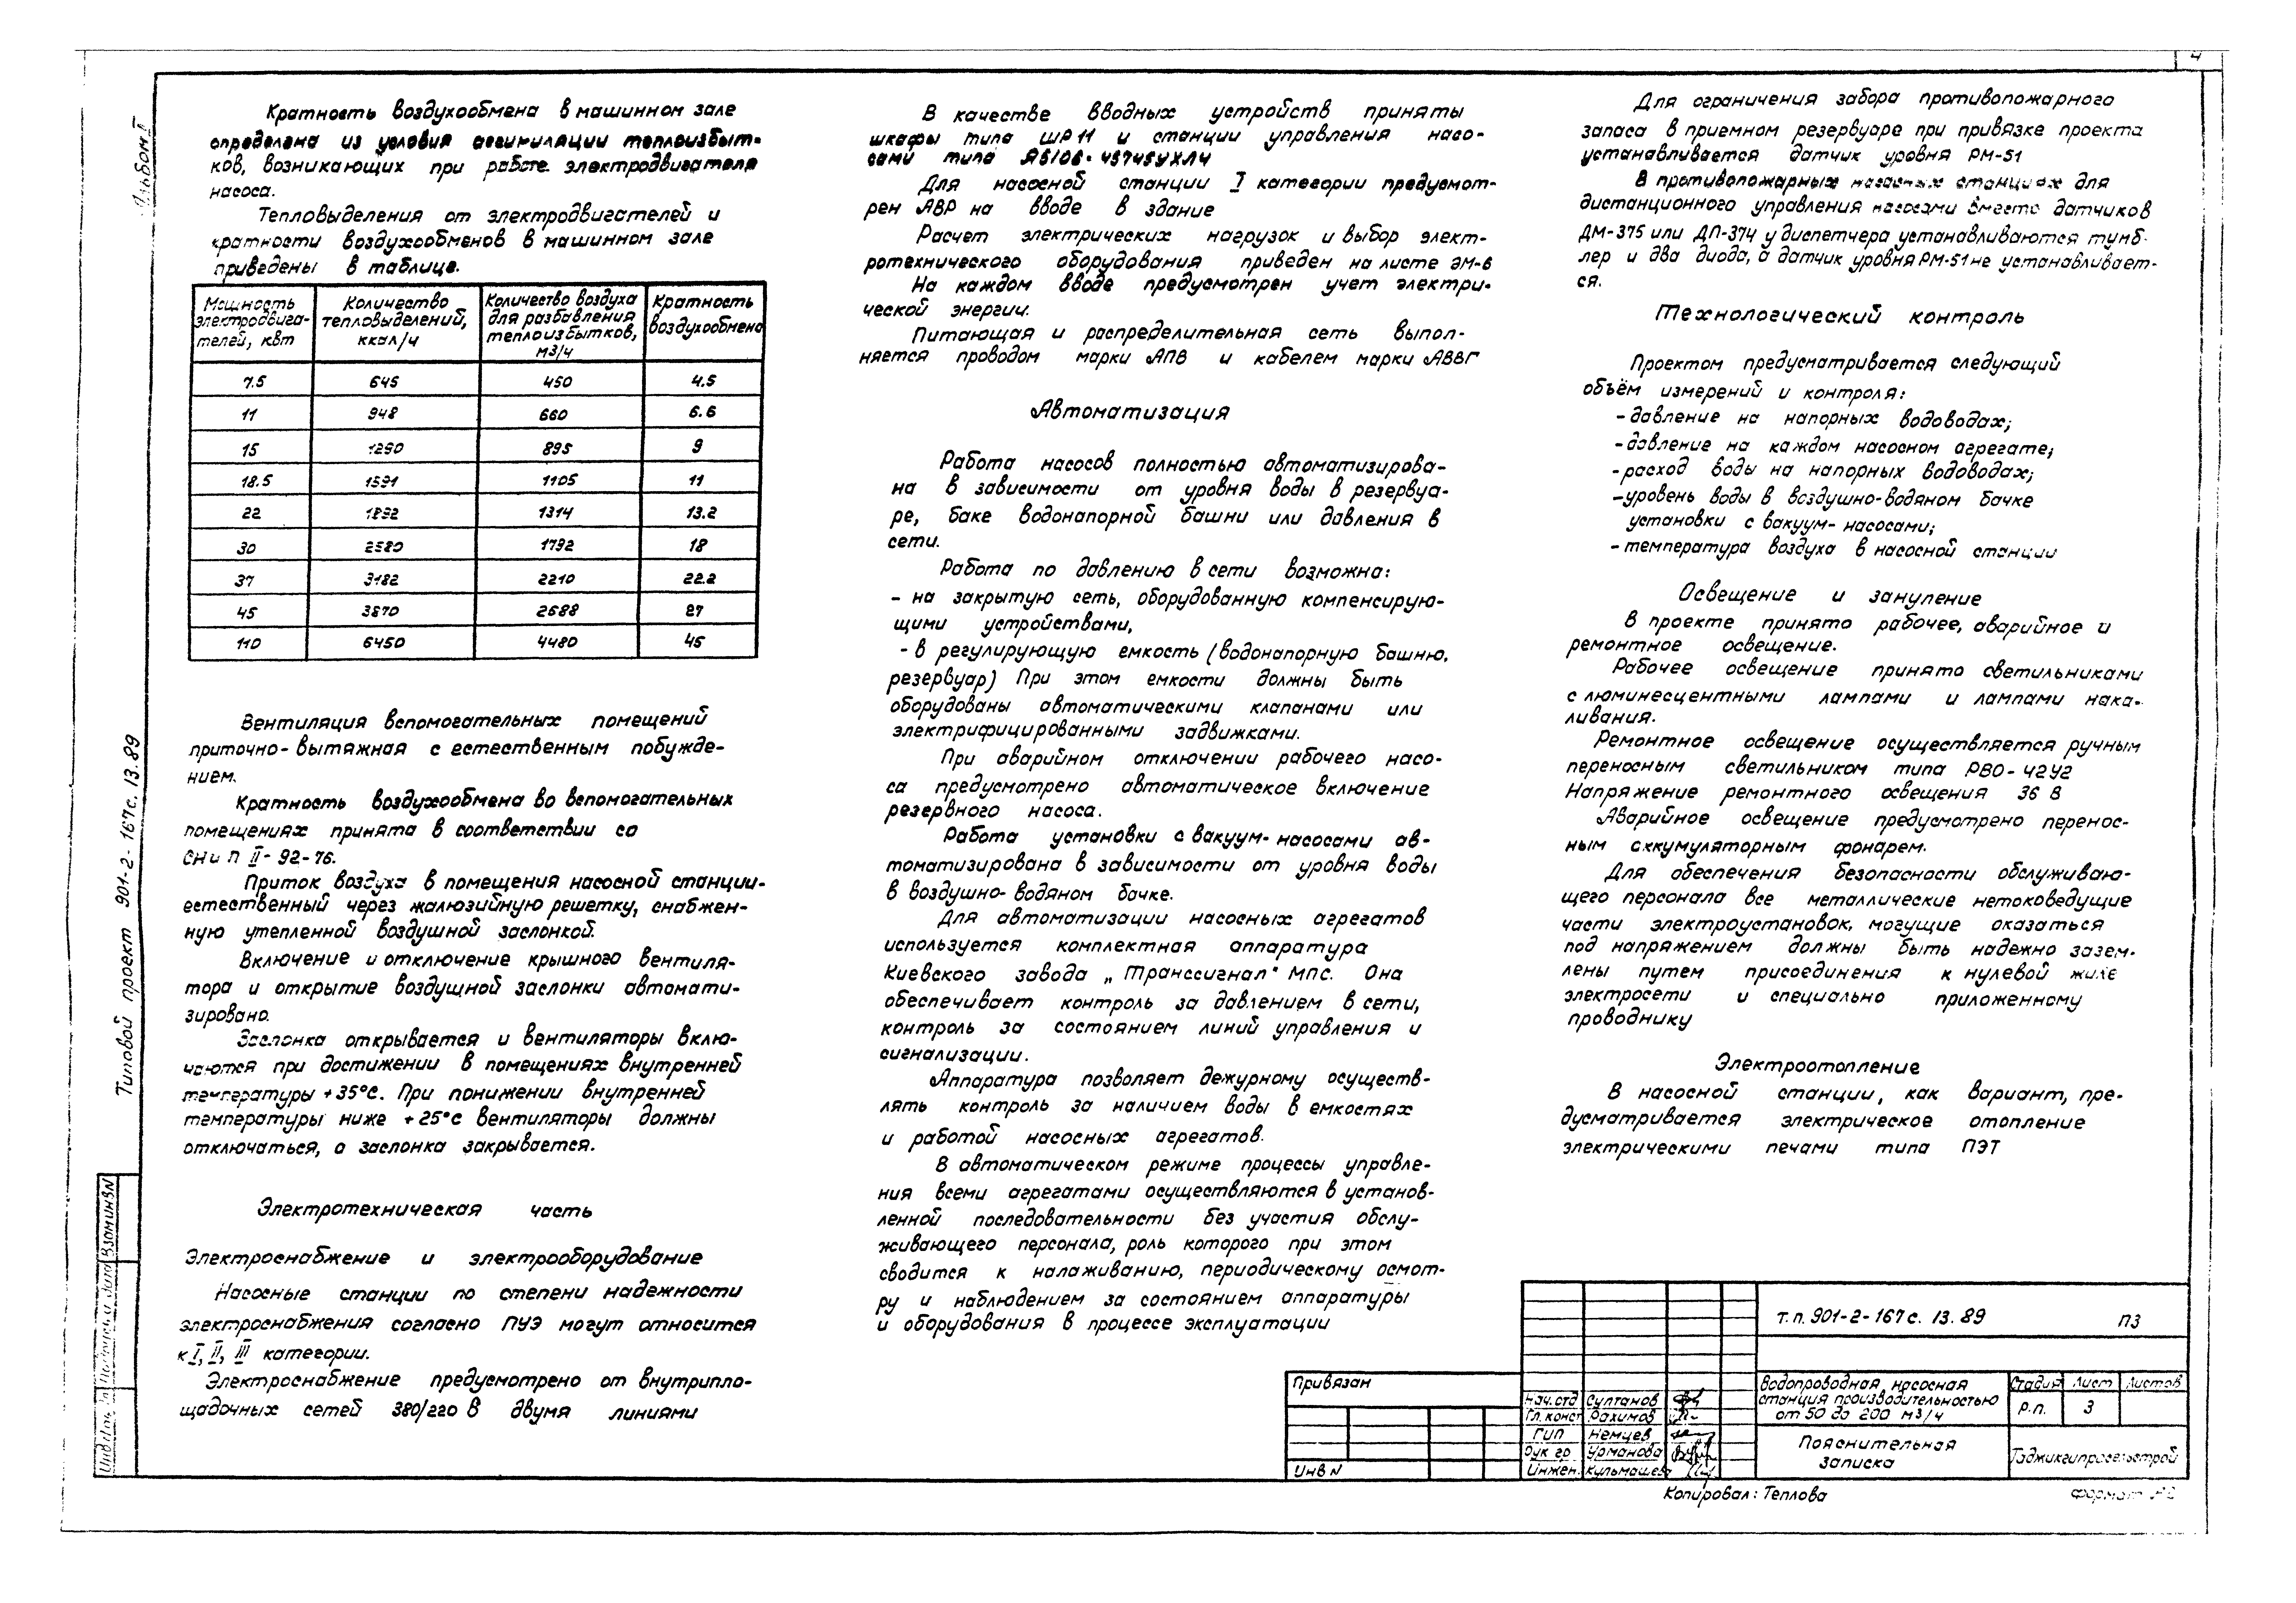 4
Альбом I
Типовой проект 901-2-167с. 13.89
Кратность воздухообмена в машинном зале
определена из условия ассимиляции теплоизбыт-
ков, возникающих при работе электродвигателя
насоса.
Тепловыделения от электродвигателей и
кратности воздухообменов в машинном зале
приведены в таблице.
Мощность электродвига- телей, квт | Количество тепловыделений, ккал/ч | Количество воздуха для разбавления теплоизбытков, м3/ч | Кратность воздухообмена
7.5 645 450 4.5
11 948 660 6.6
15 1290 895 9
18.5 1591 1105 11
22 1892 1314 13.2
30 2580 1792 18
37 3182 2210 22.2
45 3870 2688 27
110 6450 4480 45
Вентиляция вспомогательных помещений
приточно-вытяжная с естественным побужде-
нием.
Кратность воздухообмена во вспомогательных
помещениях принята в соответствии со
СНиП II-92-76.
Приток воздуха в помещения насосной станции-
естественный через жалюзийную решетку, снабжен-
ную утепленной воздушной заслонкой.
Включение и отключение крышного вентиля-
тора и открытие воздушной заслонки автомати-
зировано.
Заслонка открывается и вентиляторы вклю-
чаются при достижении в помещениях внутренней
температуры +35°С. При понижении внутренней
температуры ниже +25°С вентиляторы должны
отключаться, а заслонка закрывается.
Электротехническая часть
Электроснабжение и электрооборудование
Насосные станции по степени надежности
электроснабжения согласно ПУЭ могут относится
к I, II, III категории.
Электроснабжение предусмотрено от внутрипло-
щадочных сетей 380/220 в двумя линиями
В качестве вводных устройств приняты
шкафы типа ШР11 и станции управления насо-
сами типа
Для насосной станции I категории предусмот-
рен АВР на вводе в здание
Расчет электрических нагрузок и выбор элект-
ротехнического оборудования приведен на листе ЭМ-6
На каждом вводе предусмотрен учет электри-
ческой энергии.
Питающая и распределительная сеть выпол-
няется проводом марки АПВ и кабелем марки АВВГ
Автоматизация
Работа насосов полностью автоматизирова-
на в зависимости от уровня воды в резервуа-
ре, баке водонапорной башни или давления в
сети.
Работа по давлению в сети возможна:
- на закрытую сеть, оборудованную компенсирую-
щими устройствами,
- в регулирующую емкость (водонапорную башню,
резервуар) При этом емкости должны быть
оборудованы автоматическими клапанами или
электрифицированными задвижками.
При аварийном отключении рабочего насо-
са предусмотрено автоматическое включение
резервного насоса.
Работа установки с вакуум-насосами ав-
томатизирована в зависимости от уровня воды
в воздушно-водяном бачке.
Для автоматизации насосных агрегатов
используется комплектная аппаратура
Киевского завода „Транссигнал" МПС. Она
обеспечивает контроль за давлением в сети,
контроль за состоянием линий управления и
сигнализации.
Аппаратура позволяет дежурному осуществ-
лять контроль за наличием воды в емкостях
и работой насосных агрегатов.
В автоматическом режиме процессы управле-
ния всеми агрегатами осуществляются в установ-
ленной последовательности без участия обслу-
живающего персонала, роль которого при этом
сводится к налаживанию, периодическому осмот-
ру и наблюдением за состоянием аппаратуры
и оборудования в процессе эксплуатации
Для ограничения забора противопожарного
запаса в приемном резервуаре при привязке проекта
устанавливается датчик уровня РМ-51
В противопожарных насосных станциях для
дистанционного управления насосами вместо датчиков
ДМ-375 или ДП-374 у диспетчера устанавливаются тумб-
лер и два диода, а датчик уровня РМ-51 не устанавливает-
ся.
Технологический контроль
Проектом предусматривается следующий
объём измерений и контроля:
- давление на напорных водоводах;
- давление на каждом насосном агрегате;
- расход воды на напорных водоводах;
- уровень воды в воздушно-водяном бачке
установки с вакуум-насосами;
- температура воздуха в насосной станции
Освещение и зануление
В проекте принято рабочее, аварийное и
ремонтное освещение.
Рабочее освещение принято светильниками
с люминесцентными лампами и лампами нака-
ливания.
Ремонтное освещение осуществляется ручным
переносным светильником типа РВО-42У2
Напряжение ремонтного освещения 36 В
Аварийное освещение предусмотрено перенос-
ным аккумуляторным фонарем.
Для обеспечения безопасности обслуживаю-
щего персонала все металлические нетоковедущие
части электроустановок, могущие оказаться
под напряжением должны быть надежно зазем-
лены путем присоединения к нулевой жиле
электросети и специально приложенному
проводнику
Электроотопление
В насосной станции, как вариант, пре-
дусматривается электрическое отопление
электрическими печами типа ПЭТ
Т.п. 901-2-167с. 13.89 ПЗ
Привязан
Инв N
Нач.отд Султанов
Гл. конст Рахимов
ГИП Немцев
Рук гр Урманова
Инжен. Кульмашев
Водопроводная насосная
станция производительностью
от 50 до 200 м3/ч
Стадия Лист Листов
Р.п. 3
Пояснительная
записка
Таджикгипросельстрой
Копировал: Теплова
Формат А2
Взам инв N
Подпись и дата
Инв N подл